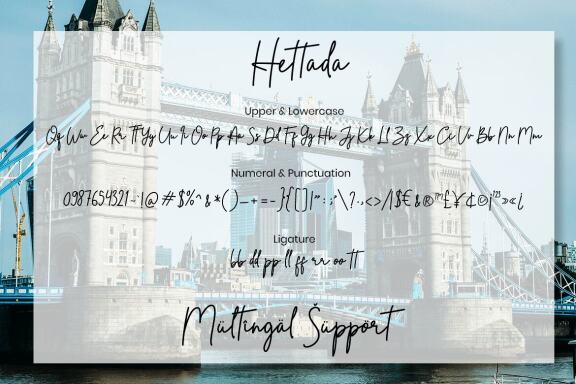 Hettada
Upper & Lowercase
Qq Ww Ee Rr Tt Yy Uu Ii Oo Pp Aa Ss Dd Ff Gg Hh Jj Kk Ll Zz Xx Cc Vv Bb Nn Mm
Numeral & Punctuation
0987654321~`!@#$%^&*()_+=-}{[]|":;'\?.,<>/|$€&®™£¥¢©¡¹²³»«¿
Ligature
bb dd pp ll ff rr oo tt
Mültingäl Šüppört